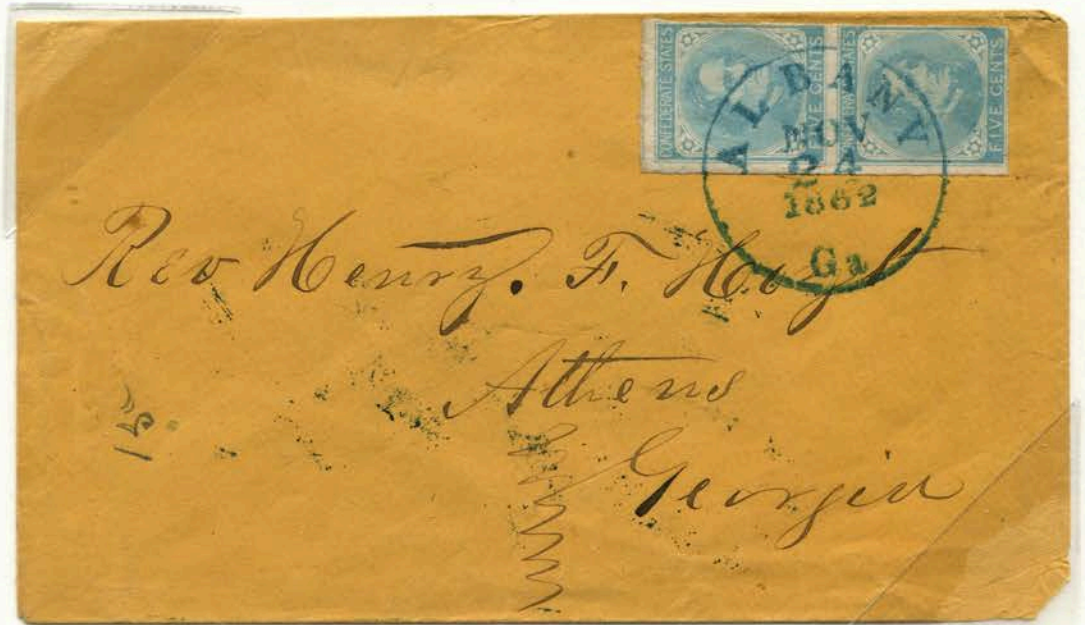 CONFEDERATE STATES
FIVE CENTS
FIVE CENTS
ALBANY
NOV
24
1862
Ga
Rev Henry. F. Hoyt
Athens
Georgia